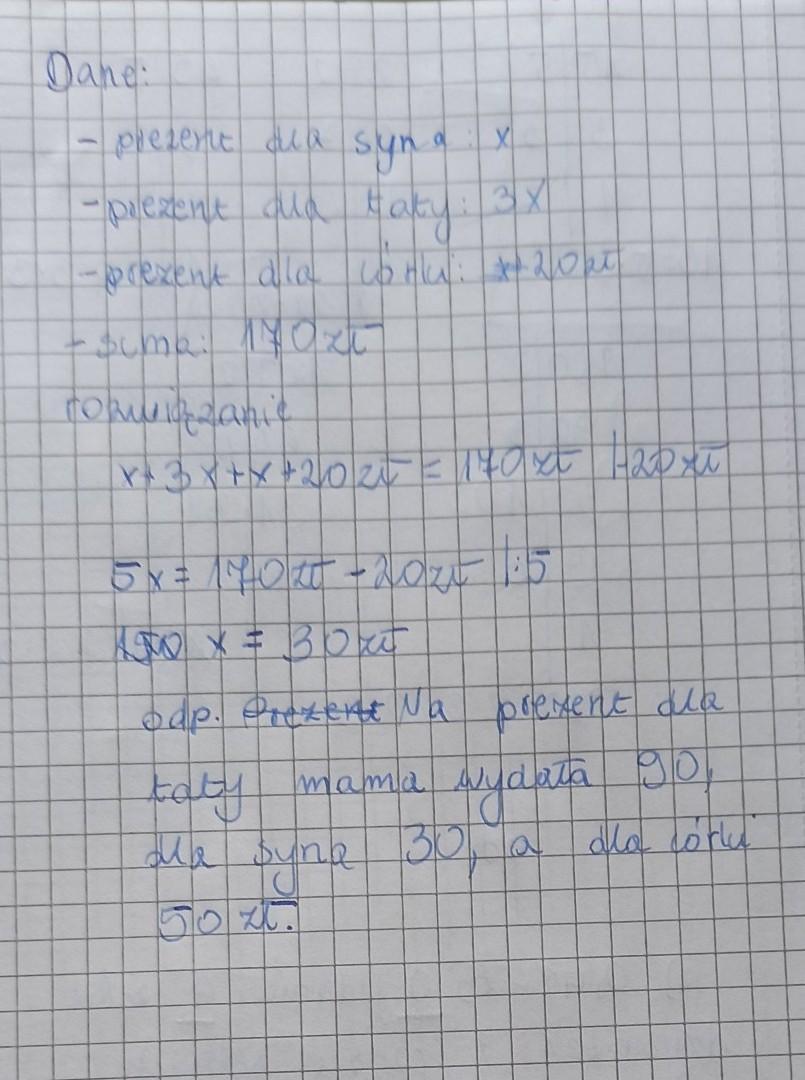 Dane:
- prezent dla syna: x
- prezent dla taty: 3x
- prezent dla córki: x+20zł
- suma: 170zł
rozwiązanie
x+3x+x+20zł = 170zł |-20zł
5x = 170zł - 20zł |:5
150 x = 30zł
odp. Prezent Na prezent dla
taty mama wydała 90,
dla syna 30, a dla córki
50 zł.